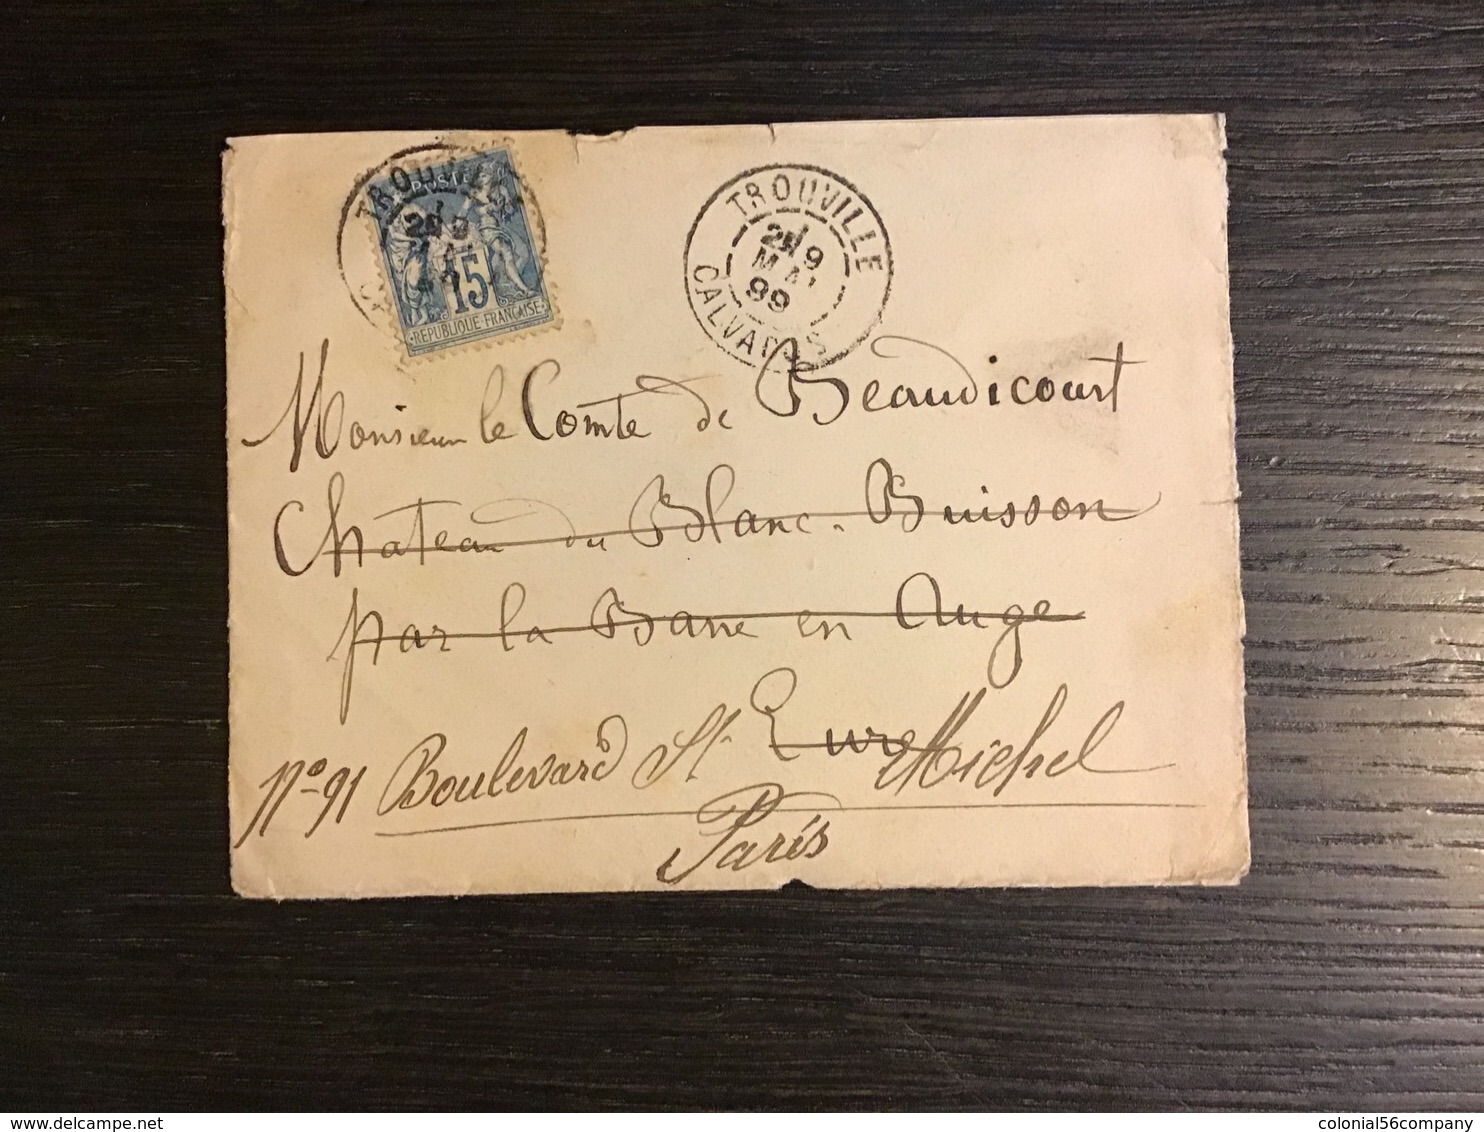 POSTES
15
REPUBLIQUE FRANÇAISE
TROUVILLE
TROUVILLE
9
MAI
99
CALVADOS
Monsieur le Comte de Beaudicourt
Chateau du Blanc-Buisson
par la Barre en Auge
Eure
No 91 Boulevard St Michel
Paris
colonial56company